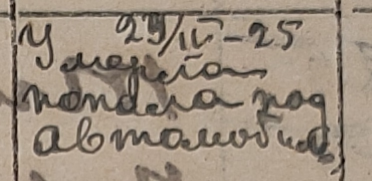 У 29/IV-25
мерла
попала под
автомобиль